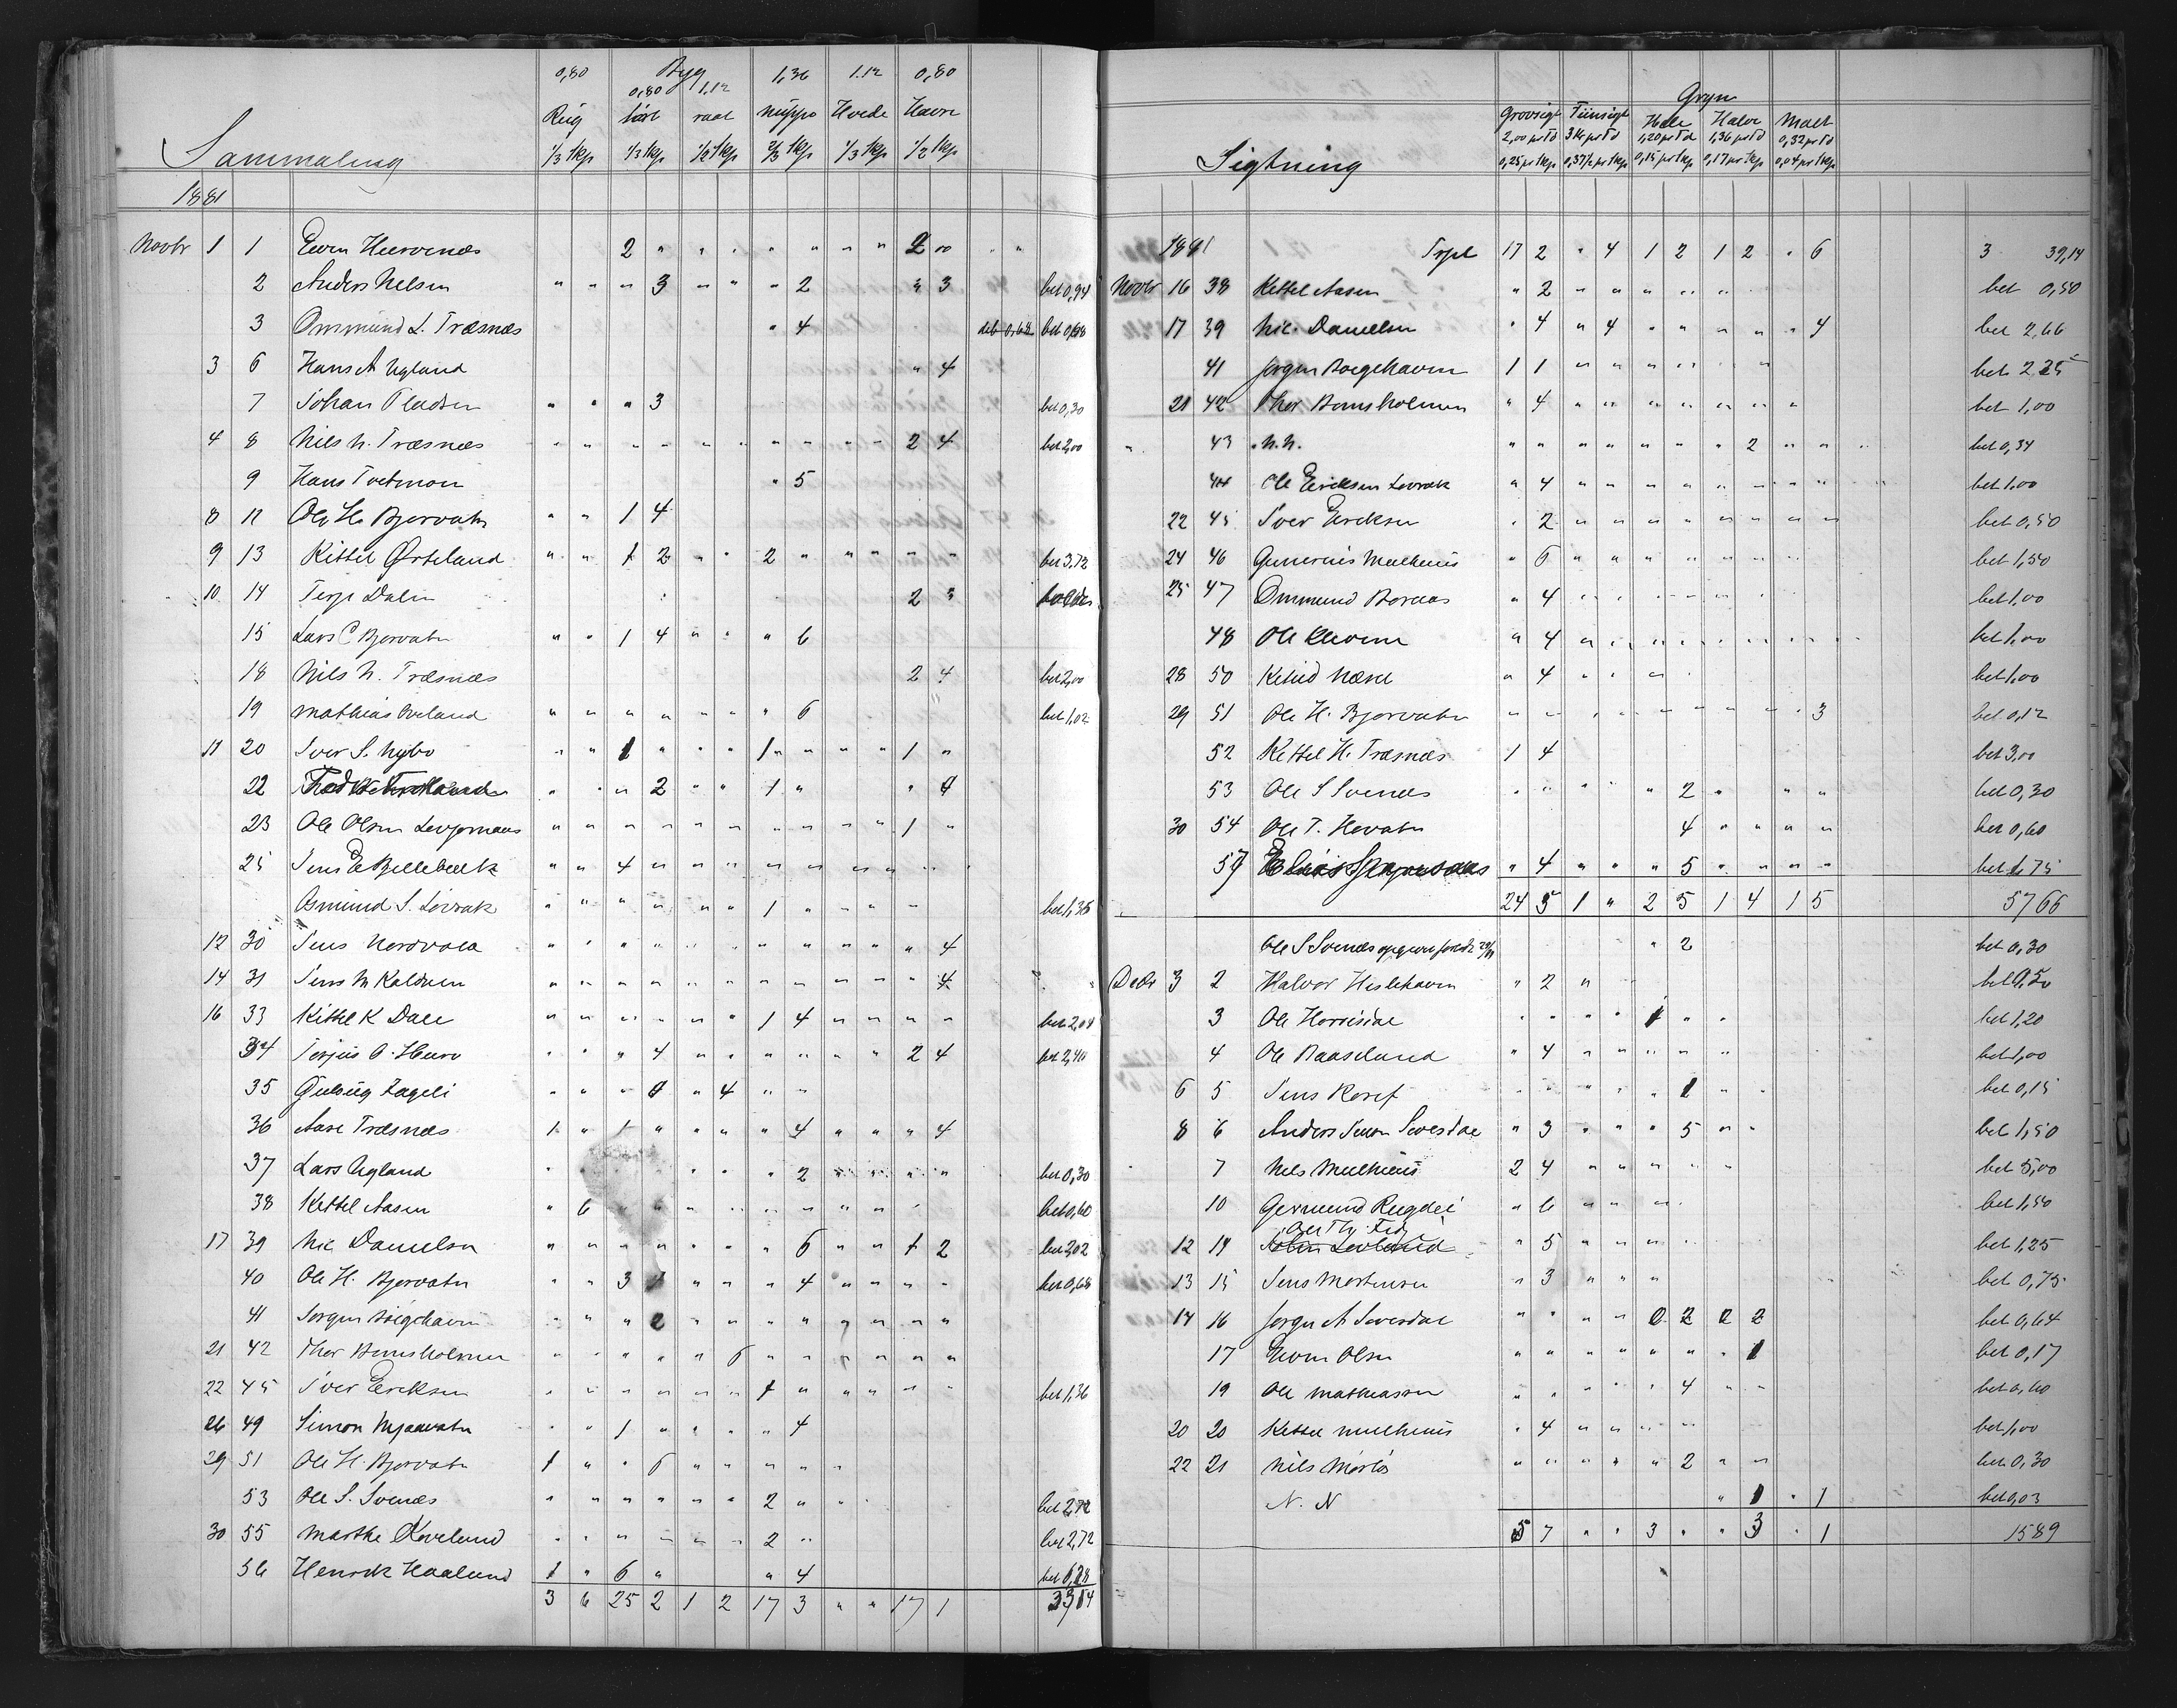 0,80 Byg 1,36 1.12 0,80
0,80 1.12
Rug tört raat Huppo Hvede Havre
1/3 Skp 1/3 Skp 1/2 Skp 2/3 Skp 1/3 Skp 1/2 Skp
Sammaling
1881
Novbr 1 1 Even 2 " " " " " " " 2 00 " "
2 Anders Nelsen " " " 3 " " " 2 " 3 bet 0,94
3 Ommund L. Træsnæs " 4 bet 0,68
3 6 Hans A Ugland " 4
7 Johan Pladsen " " " 3 bet 0,30
4 8 Nils N. Træsnæs " " " " " " " " " " 2 4 bet 2,00
9 Hans Tveitmon " 5
8 11 Ole H. Bjorvatn " " 1 4
9 13 Kittel Örteland " " 1 2 " " 2 " " " " " bet 3,72
10 14 Terje Dalen 2 "
15 Lars C Bjorvatn " " 1 4 " " " 6
18 Nils N. Træsnæs 2 4 bet 2,00
19 Mathias Oveland " " " " " " " 6 bet 1,02
11 20 Iver S. Nybo " " 1 " " " 1 " " " 1 "
22 " " " 2 " " 1 " " 4
23 Ole Olsen " " " " " " " " " " 1 "
25 Jens E Billebæk " " 4 " " " " " " " " "
Osmund S. Lövrak " " " " " " 1 " " " " bet 1,36
12 30 Jens " " " " " " " " " " " 4
14 31 Jens M Kaldnen " " " " " " " " " " " 4
16 33 Kittel K Dale " " " " " " 1 4 " " " " bet 2,04
34 Terjus O. " " " 4 " " " " " " 2 4 bet 2,40
35 Gulbug Zageli " " " " 4 " "
36 Aase Træsnæs 1 " 1 " " " " 4 " " " 4
37 Lars Ugland " " " " 2 " " " " bet 0,30
38 Kettel Aasen " 6 " " " " " " " " bet 0,60
17 39 Nic. Danielsen " " " " " " " 6 " " 1 2 bet 2,02
40 Ole H. Bjorvatn " " 3 " " " 4 " " " " bet 0,68
41 Jorgen Bögehavn " " " 2 " " " " " " " "
21 42 Thor Bomsholmen " " " " " 6 " " " " " "
22 45 Iver Eriksen " " " " " " 1 " " " " " bet 1,36
26 49 Simon Mjaavatn " " 1 " " " " 4
29 51 Ole H. Bjorvatn 1 " " 6 " " " " " "
53 Ole S. Svenæs " " " " " " 2 " " bet 2,72
30 55 Marthe Oveland " " " " " " 2 " bet 2,72
56 Henrik Haaland 1 " 6 " " 4 bet 6,28
3 6 25 2 1 2 17 3 " " 17 1
Gryn
Grovsigt Fiinsigt Hele Halve Malt
2,00 pr Td 3 Kr pr Td 1,20 pr Td 1,36 pr Td 0,32 pr Td
Sigtning 0,25 pr Skp 0,37½ pr Skp 0,15 pr Skp 0,17 pr Skp 0,04 pr Skp
1881 Trpt 17 2 " 4 1 2 1 2 " 6 3 39,14
Novbr 16 38 Kettel Aasen " 2 " " " " " bet 0,50
17 39 Nic. Danielsen " 4 " 4 " " " " " 4 bet 2,66
41 Jorgen Boegehavn 1 1 " " " " " " bet 2 25
21 42 Thor Bomsholmen " 4 " " " " " " " bet 1,00
" 43 N.N. " " " " " " " 2 " " bet 0,34
44 Ole Eriksen Lövrak " 4 " " " " " " " " bet 1,00
22 45 Iver Eriksen " 2 " " " " " " " " bet 0,50
24 46 Gunerius Mulhuus " 6 " " " " " " " bet 1,50
25 47 Ommund Boraas " 4 " " " " " " bet 1,00
48 Ole Klevene " 4 " " " " " " " " bet 1,00
28 50 Ketild Næset " 4 " " " " bet 1,00
29 51 Ole H. Bjorvatn " " " " " " " " " 3 bet 0,12
52 Kettel H. Træsnæs 1 4 bet 3,00
53 Ole S Svenæs " " " " " 2 " " " bet 0,30
30 54 Ole T. Hovatn 4 " " " " bet 0,60
57 " 4 " " " 5 " " " " bet 1,75
24 5 1 " 2 5 1 4 1 5 57 66
Ole S Svenæs 29/11 " 2 bet 0,30
Decbr 3 2 Halvor Heslehavn " 2 " bet 0,50
3 Ole " " " " 1 " " bet 1,20
4 Ole Baaseland " 4 " " " " " bet 1,00
6 5 Jens Roref " " " " " 1 " " bet 0,15
8 6 Anders " 3 " " " 5 " " bet 1,50
7 Nils Mulhuus 2 4 " " " " " bet 5,00
10 Germund Rugdei " 6 " " " " bet 1,50
12 14 " 5 " " " " bet 1,25
13 15 Jens Mortensen " 3 " " " bet 0,75
14 16 Jorgen A " " " " 0 2 0 2 bet 0,64
17 Even Olsen " " " " " " " 1 bet 0,17
19 Ole Mathiassen " " " " " 4 " " bet 0,60
20 20 Kettel Mulhuus " 4 " " " " bet 1,00
22 21 Nils Mörlös " " " " " 2 " " bet 0,30
N. N " 1 " 1 bet 0,03
5 7 " " 3 " " 3 " 1 15 89